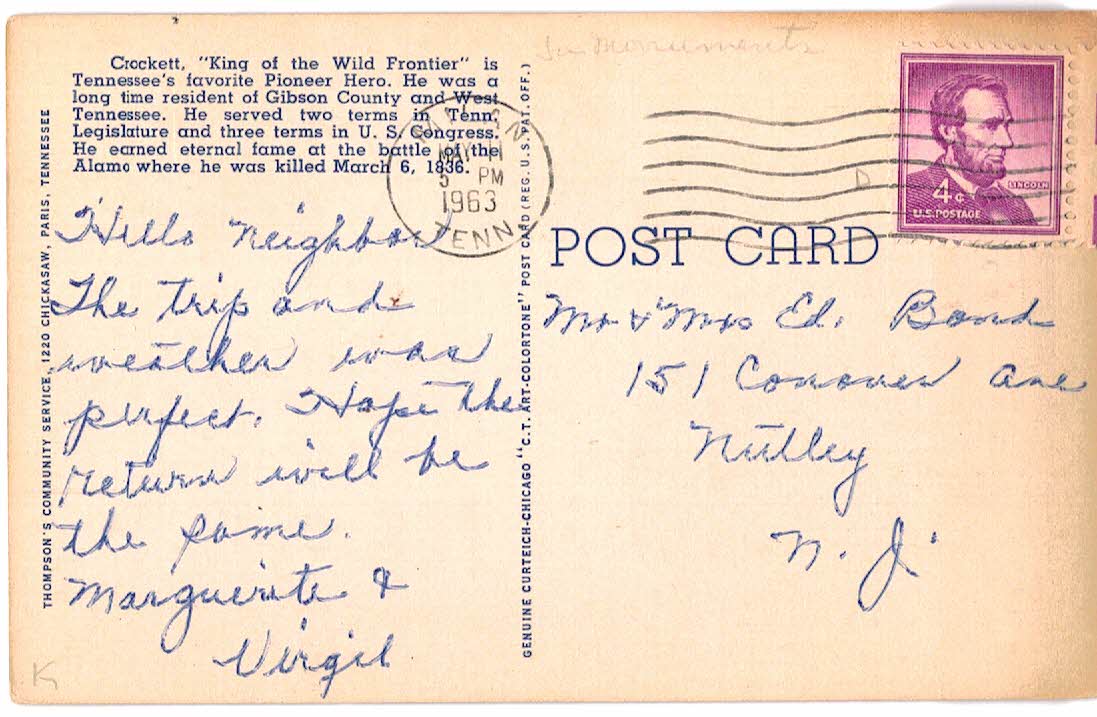 Crockett, "King of the Wild Frontier" is
Tennessee's favorite Pioneer Hero. He was a
long time resident of Gibson County and West
Tennessee. He served two terms in Tenn.
Legislature and three terms in U. S. Congress.
He earned eternal fame at the battle of the
Alamo where he was killed March 6, 1836.
THOMPSON'S COMMUNITY SERVICE, 1220 CHICKASAW, PARIS, TENNESSEE
Hello neighbor
The trip and
weather was
perfect. Hope the
return will be
the same.
Marguerite &
Virgil
K
GENUINE CURTEICH-CHICAGO "C.T. ART-COLORTONE" POST CARD (REG. U.S. PAT. OFF.)
MAY
5 PM
1963
TENN
Monuments
4¢
LINCOLN
U.S. POSTAGE
D
POST CARD
Mr & Mrs Ed. Bond
151 Conover Ave
Nutley
N. J.